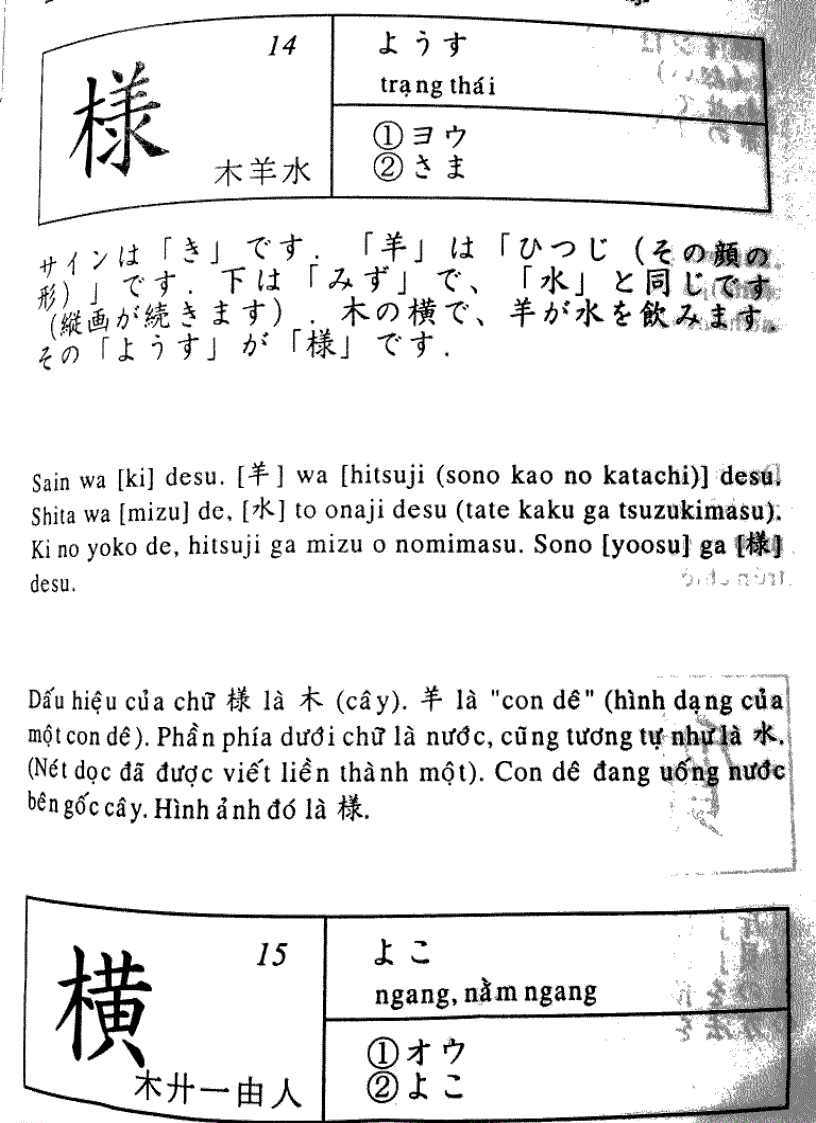 14
様
木羊水
ようす
trạng thái
①ヨウ
②さま
サインは「き」です.「羊」は「ひつじ(その顔の
形)」です.下は「みず」で、「水」と同じです
(縦画が続きます).木の横で、羊が水を飲みます.
その「ようす」が「様」です.
Sain wa [ki] desu. [羊] wa [hitsuji (sono kao no katachi)] desu.
Shita wa [mizu] de, [水] to onaji desu (tate kaku ga tsuzukimasu).
Ki no yoko de, hitsuji ga mizu o nomimasu. Sono [yoosu] ga [様]
desu.
Dấu hiệu của chữ 様 là 木 (cây). 羊 là "con dê" (hình dạng của
một con dê). Phần phía dưới chữ là nước, cũng tương tự như là 水.
(Nét dọc đã được viết liền thành một). Con dê đang uống nước
bên gốc cây. Hình ảnh đó là 様.
15
横
木廾一由人
よこ
ngang, nằm ngang
①オウ
②よこ